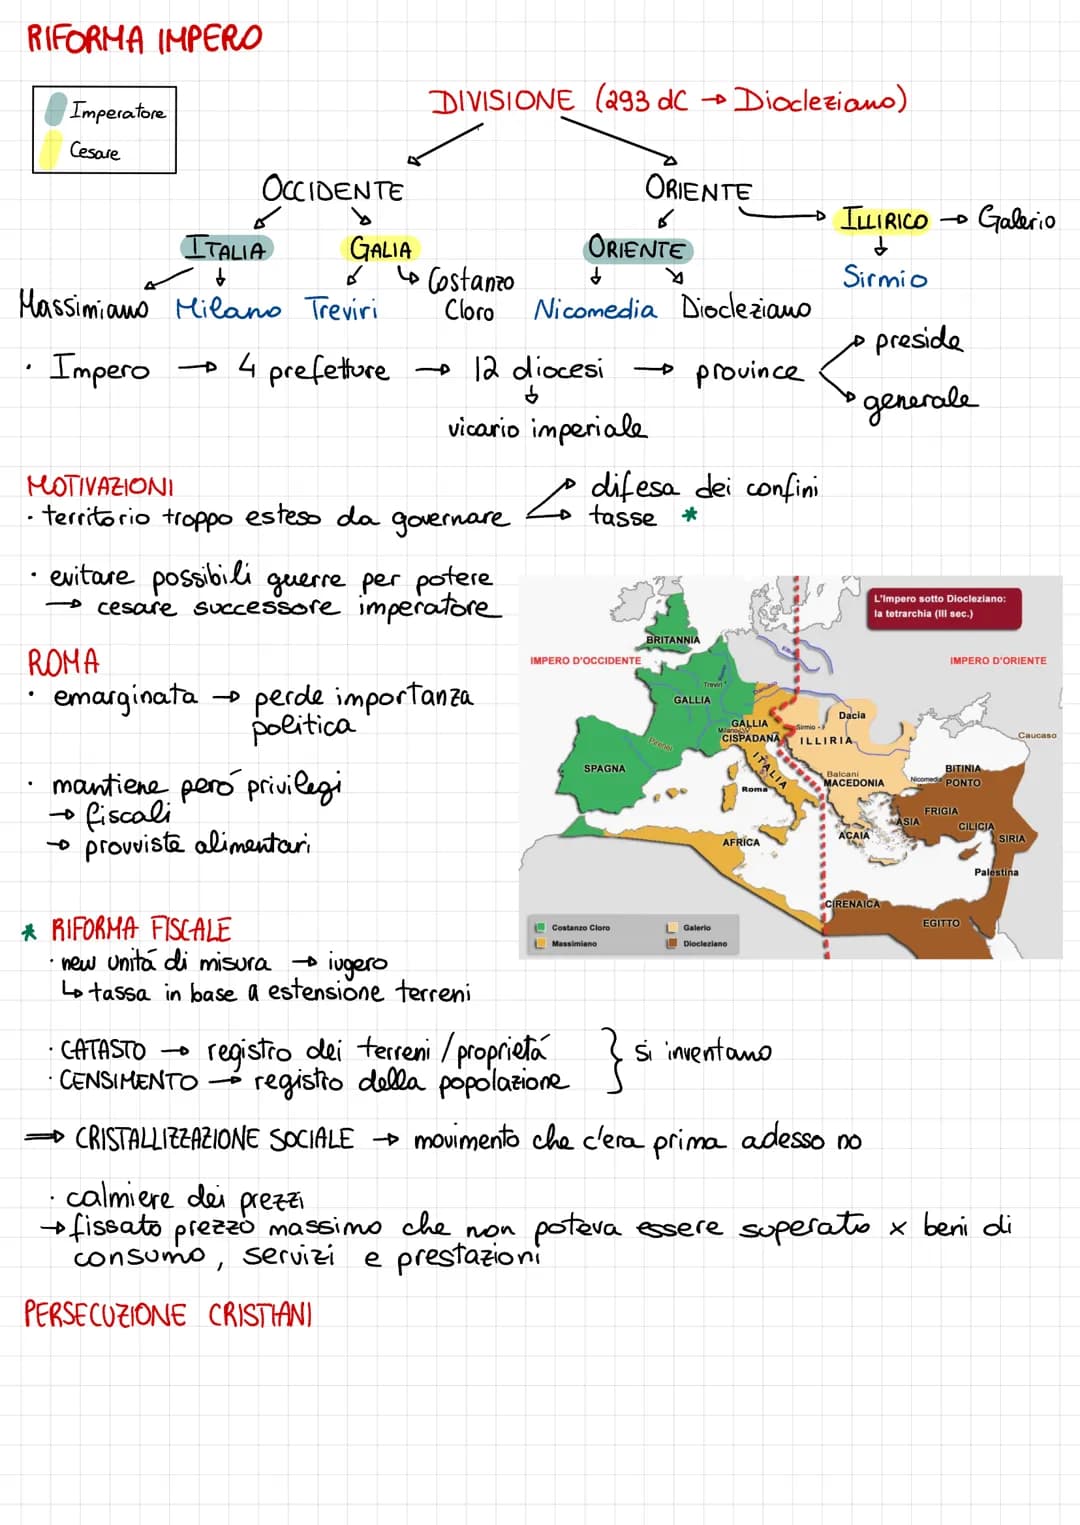 RIFORMA IMPERO
Imperatore
Cesare
DIVISIONE (293 dC → Diocleziano)
OCCIDENTE
ORIENTE
ITALIA
GALIA
ORIENTE
ILLIRICO → Galerio
Massimiano
Milano
Treviri
Costanzo
Cloro
Nicomedia
Diocleziano
Sirmio
· Impero → 4 prefetture → 12 diocesi → province
preside
generale
vicario imperiale
MOTIVAZIONI
· territorio troppo esteso da governare
difesa dei confini
tasse *
· evitare possibili guerre per potere
→ cesare successore imperatore
ROMA
· emarginata → perde importanza
politica
· mantiene peró privilegi
→ fiscali
→ provviste alimentari
L'Impero sotto Diocleziano:
la tetrarchia (III sec.)
IMPERO D'OCCIDENTE
IMPERO D'ORIENTE
BRITANNIA
Treviri
GALLIA
GALLIA
Milano
CISPADANA
Sirmio
Dacia
ILLIRIA
Caucaso
Pirenei
SPAGNA
ITALIA
Roma
Balcani
MACEDONIA
Nicomedia
BITINIA
PONTO
FRIGIA
ASIA
CILICIA
ACAIA
SIRIA
AFRICA
Palestina
CIRENAICA
EGITTO
Costanzo Cloro
Massimiano
Galerio
Diocleziano
* RIFORMA FISCALE
· new unitá di misura → iugero
↳ tassa in base a estensione terreni
· CATASTO → registro dei terreni / proprietá
· CENSIMENTO → registro della popolazione
} si inventano
⇒ CRISTALLIZZAZIONE SOCIALE → movimento che c'era prima adesso no
· calmiere dei prezzi
→ fissato prezzo massimo che non poteva essere superato x beni di
consumo, servizi e prestazioni
PERSECUZIONE CRISTIANI